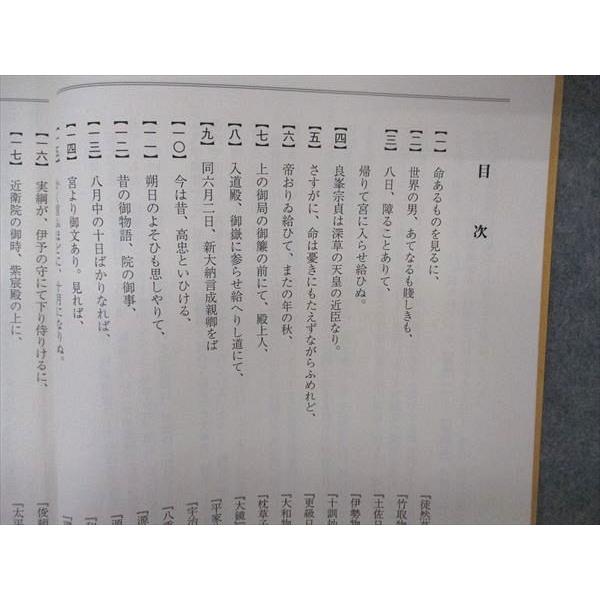 目次
【一】 命あるものを見るに、 『徒然
【二】 世界の男、あてなるも賤しきも、 『竹取物
【三】 八日、障ることありて、 『土佐日
帰りて宮に入らせ給ひぬ。 『伊勢物
【四】 良峯宗貞は深草の天皇の近臣なり。 『十訓抄
【五】 さすがに、命は憂きにもたえずながらふめれど、 『更級日
【六】 帝おりゐ給ひて、またの年の秋、 『大和物
【七】 上の御局の御簾の前にて、殿上人、 『枕草子
【八】 入道殿、御嶽に参らせ給へりし道にて、 『大鏡
【九】 同六月二日、新大納言成親卿をば 『平家
【一〇】 今は昔、高忠といひける、 『宇治
【一一】 朔日のよそひも思しやりて、 『八重
【一二】 昔の御物語、院の御事、 『源
【一三】 八月中の十日ばかりなれば、
【一四】 宮より御文あり。見れば、
十月になりぬ。
【一六】 実綱が、伊予の守にて下り侍りけるに、 『俊頼
【一七】 近衛院の御時、紫宸殿の上に、 『太平